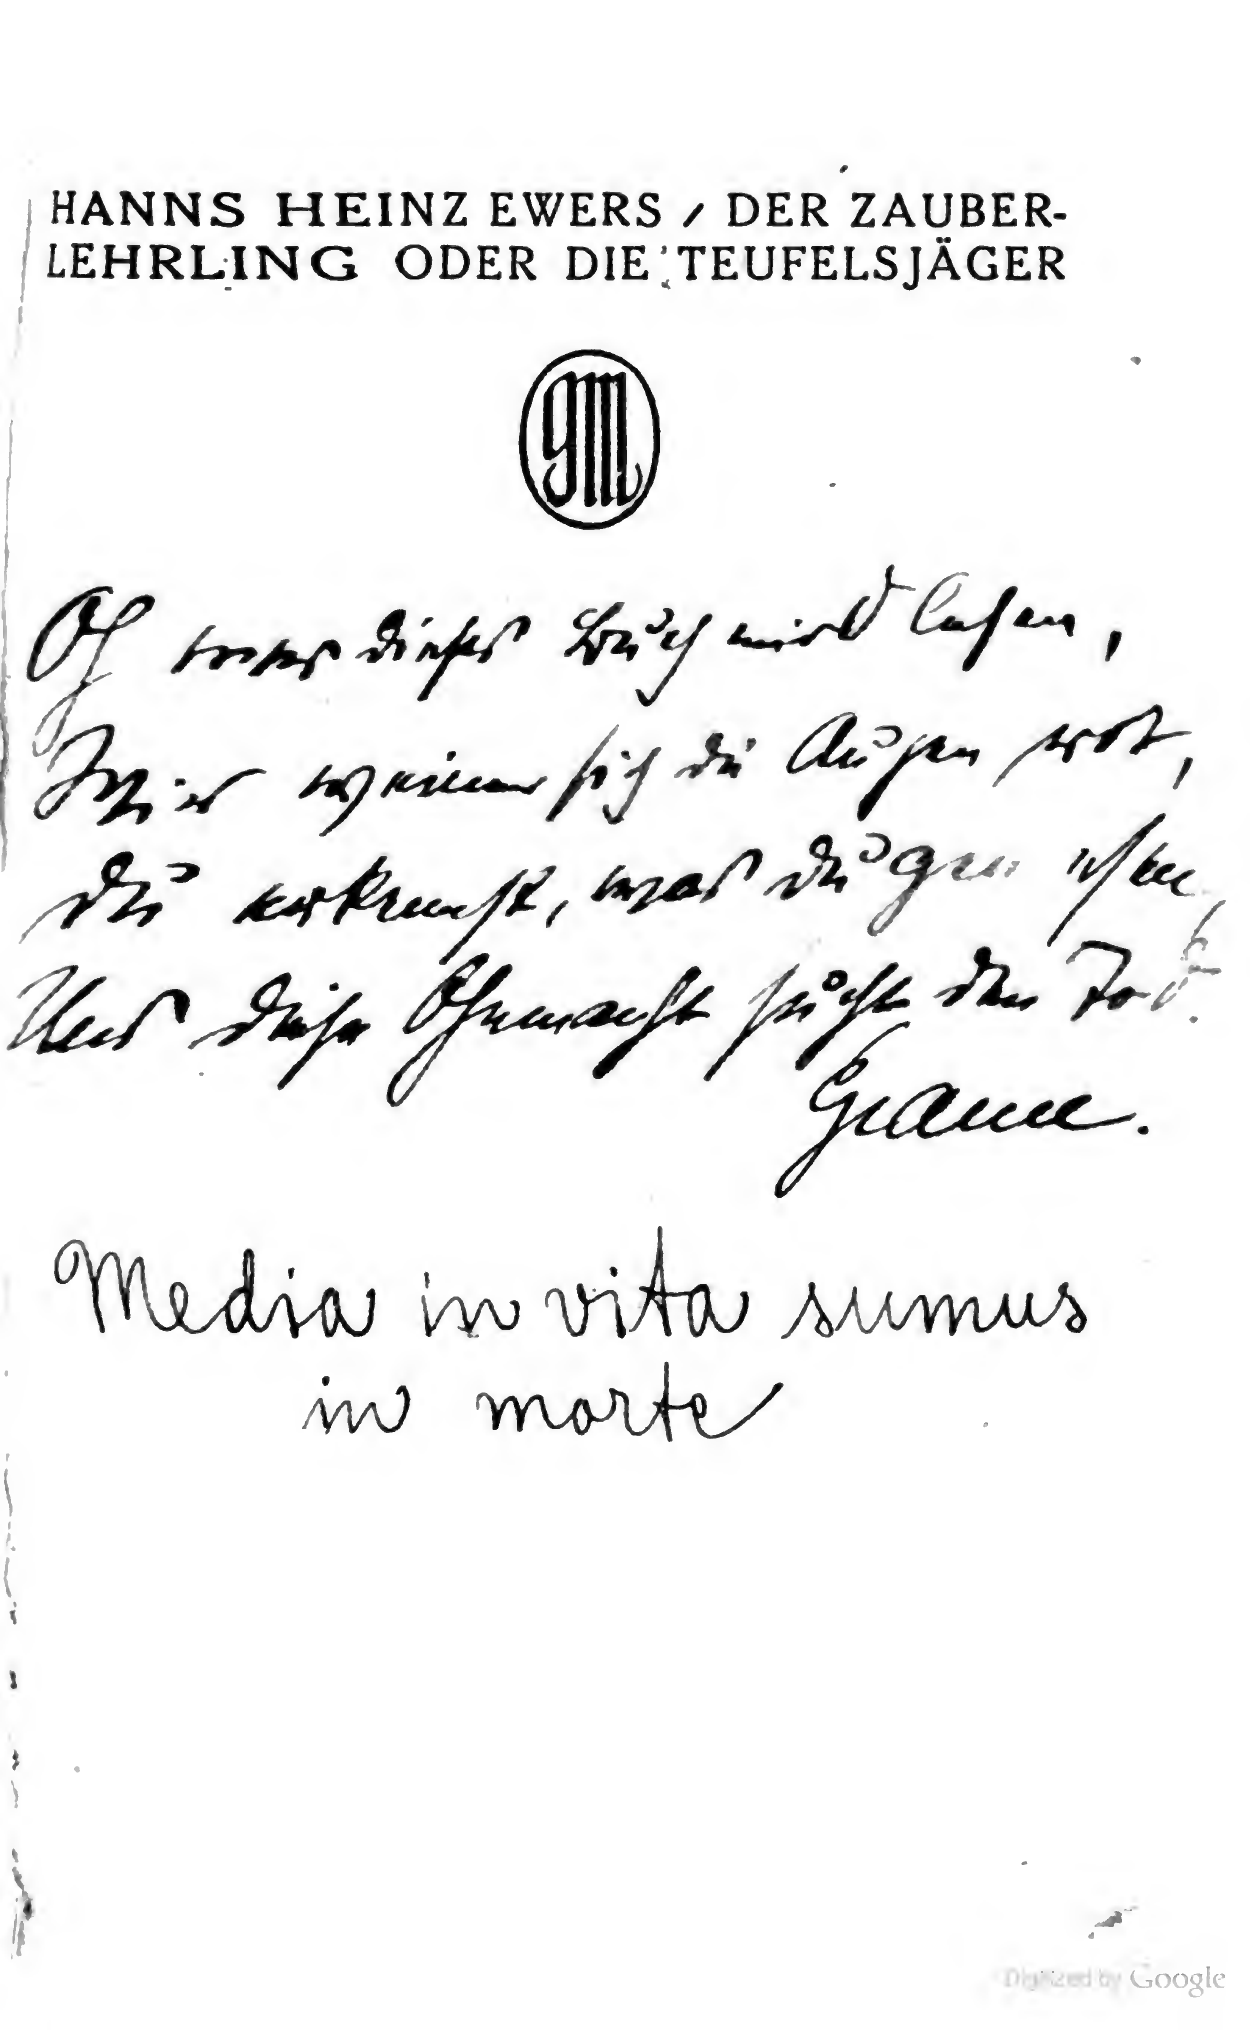 HANNS HEINZ EWERS / DER ZAUBER-
LEHRLING ODER DIE TEUFELSJÄGER
GM
Oh wer dieses Buch wird lesen,
weine sich die Augen rot,
Du erkennst, was du gewesen,
Und diese Ohnmacht sucht den Tod.
Media in vita sumus
in morte
Digitized by Google